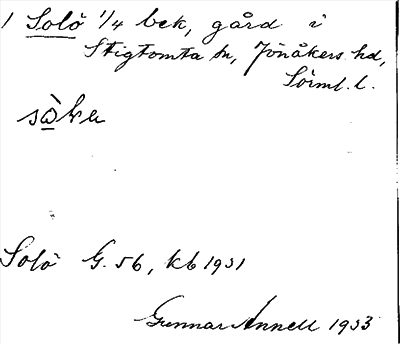 1 Solö 1/4 bek, gård i
Stigtomta sn, Jönåkers hd,
Sörml. l.
Solö G. 56, kb 1931
Gunnar Annell 1933